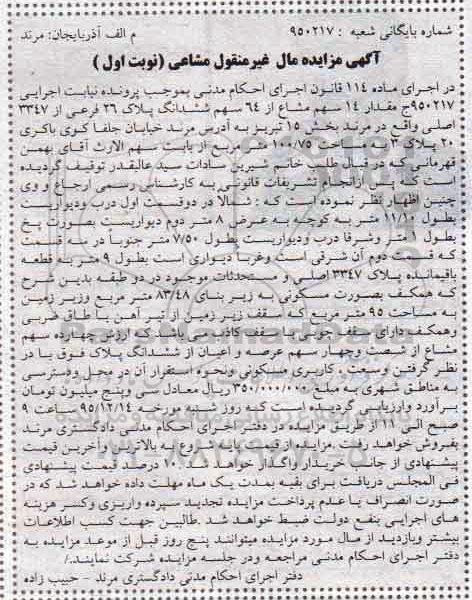 شماره بایگانی شعبه : ۹۵۰۲۱۷ م الف آذربایجان: مرند
آگهی مزایده مال غیرمنقول مشاعی (نوبت اول )
در اجرای ماده ۱۱۴ قانون اجرای احکام مدنی بموجب پرونده نیابت اجرایی
۹۵۰۲۱۷ج مقدار ۱۴ سهم مشاع از ۶۴ سهم ششدانگ پلاک ۲۶ فرعی از ۳۳۴۷
اصلی واقع در مرند بخش ۱۵ تبریز به آدرس مرند خیابان جلفا کوی باکری
۲۰ پلاک ۳ به مساحت ۱۰۰/۷۵ متر مربع از بابت سهم الارث آقای بهمن
قهرمانی که در قبال طلب خانم شیرین سادات سید عالیقدر توقیف گردیده
است که پس ازانجام تشریفات قانونی به کارشناس رسمی ارجاع و وی
چنین اظهار نظر نموده است که : شمالا در دوقسمت اول درب ودیواریست
بطول ۱۱/۱۰ متر به کوچه به عرض ۸ متر دوم دیواریست بصورت پخ
بطول ۱ متر وشرقا درب ودیواریست بطول ۷/۵۰ متر جنوبا در سه قسمت
که قسمت دوم آن شرقی است وغربا دیواری است بطول ۹ متر به قطعه
باقیمانده پلاک ۳۳۴۷ اصلی و مستحدثات موجود در دو طبقه بدین شرح
که همکف بصورت مسکونی به زیر بنای ۸۳/۴۸ متر مربع وزیر زمین
به مساحت ۹۵ متر مربع که سقف زیر زمین از تیر آهن با طاق ضربی
وهمکف دارای سقف چوبی با سقف کاذب می باشد که ارزش چهارده سهم
مشاع از شصت وچهار سهم عرصه و اعیان از ششدانگ پلاک فوق با در
نظر گرفتن وسعت ، کاربری مسکونی ونحوه استقرار آن در محل ودسترسی
به مناطق شهری به مبلغ ۳۵۰/۰۰۰/۰۰۰ ریال معادل سی وپنج میلیون تومان
برآورد وارزیابی گردیده است که روز شنبه مورخه ۹۵/۱۲/۱۴ ساعت ۹
صبح الی ۱۱ از طریق مزایده در دفتر اجرای احکام مدنی دادگستری مرند
بفروش خواهد رفت .مزایده از قیمت پایه شروع و به بالاترین وآخرین قیمت
پیشنهادی از جانب خریدار واگذار خواهد شد. ۱۰ درصد قیمت پیشنهادی
فی المجلس دریافت برای بقیه بمدت یک ماه مهلت داده خواهد شد که در
صورت انصراف یا عدم پرداخت مزایده تجدید سپرده واریزی وکسر هزینه
های اجرایی بنفع دولت ضبط خواهد شد .طالبین جهت کسب اطلاعات
بیشتر وبازدید از مال مورد مزایده میتوانند پنج روز قبل از موعد مزایده به
دفتر اجرای احکام مدنی مراجعه ودر جلسه مزایده شرکت نمایند./
دفتر اجرای احکام مدنی دادگستری مرند - حبیب زاده
ParsNamadData
۰۲۱-۸۸۳۴۹۶۷۰-۵